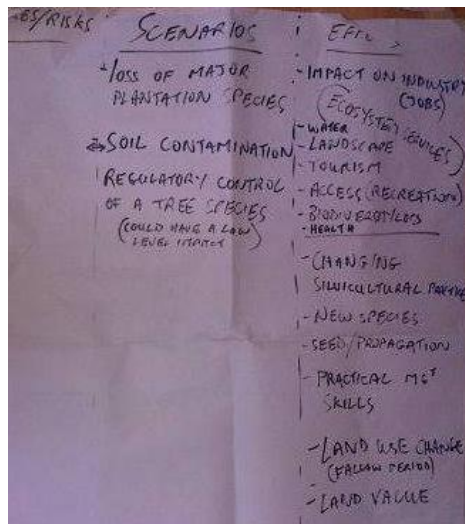 ES/RISKS
SCENARIOS
- LOSS OF MAJOR
PLANTATION SPECIES
SOIL CONTAMINATION
REGULATORY CONTROL
OF A TREE SPECIES
(COULD HAVE A LOW
LEVEL IMPACT)
- IMPACT ON INDUSTRY
(JOBS)
(ECOSYSTEM SERVICES)
- WATER
- LANDSCAPE
- TOURISM
- ACCESS (RECREATION)
- HEALTH
- CHANGING
SILVICULTURAL
- NEW SPECIES
- SEED/PROPAGATION
- PRACTICAL MGT
SKILLS
- LAND USE CHANGE
(FALLOW PERIOD)
- LAND VALUE